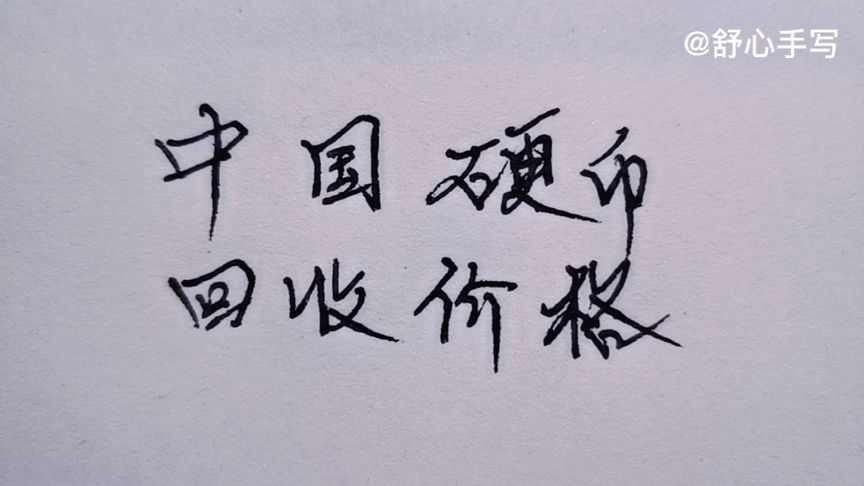 @舒心手写
中国硬币
回收价格